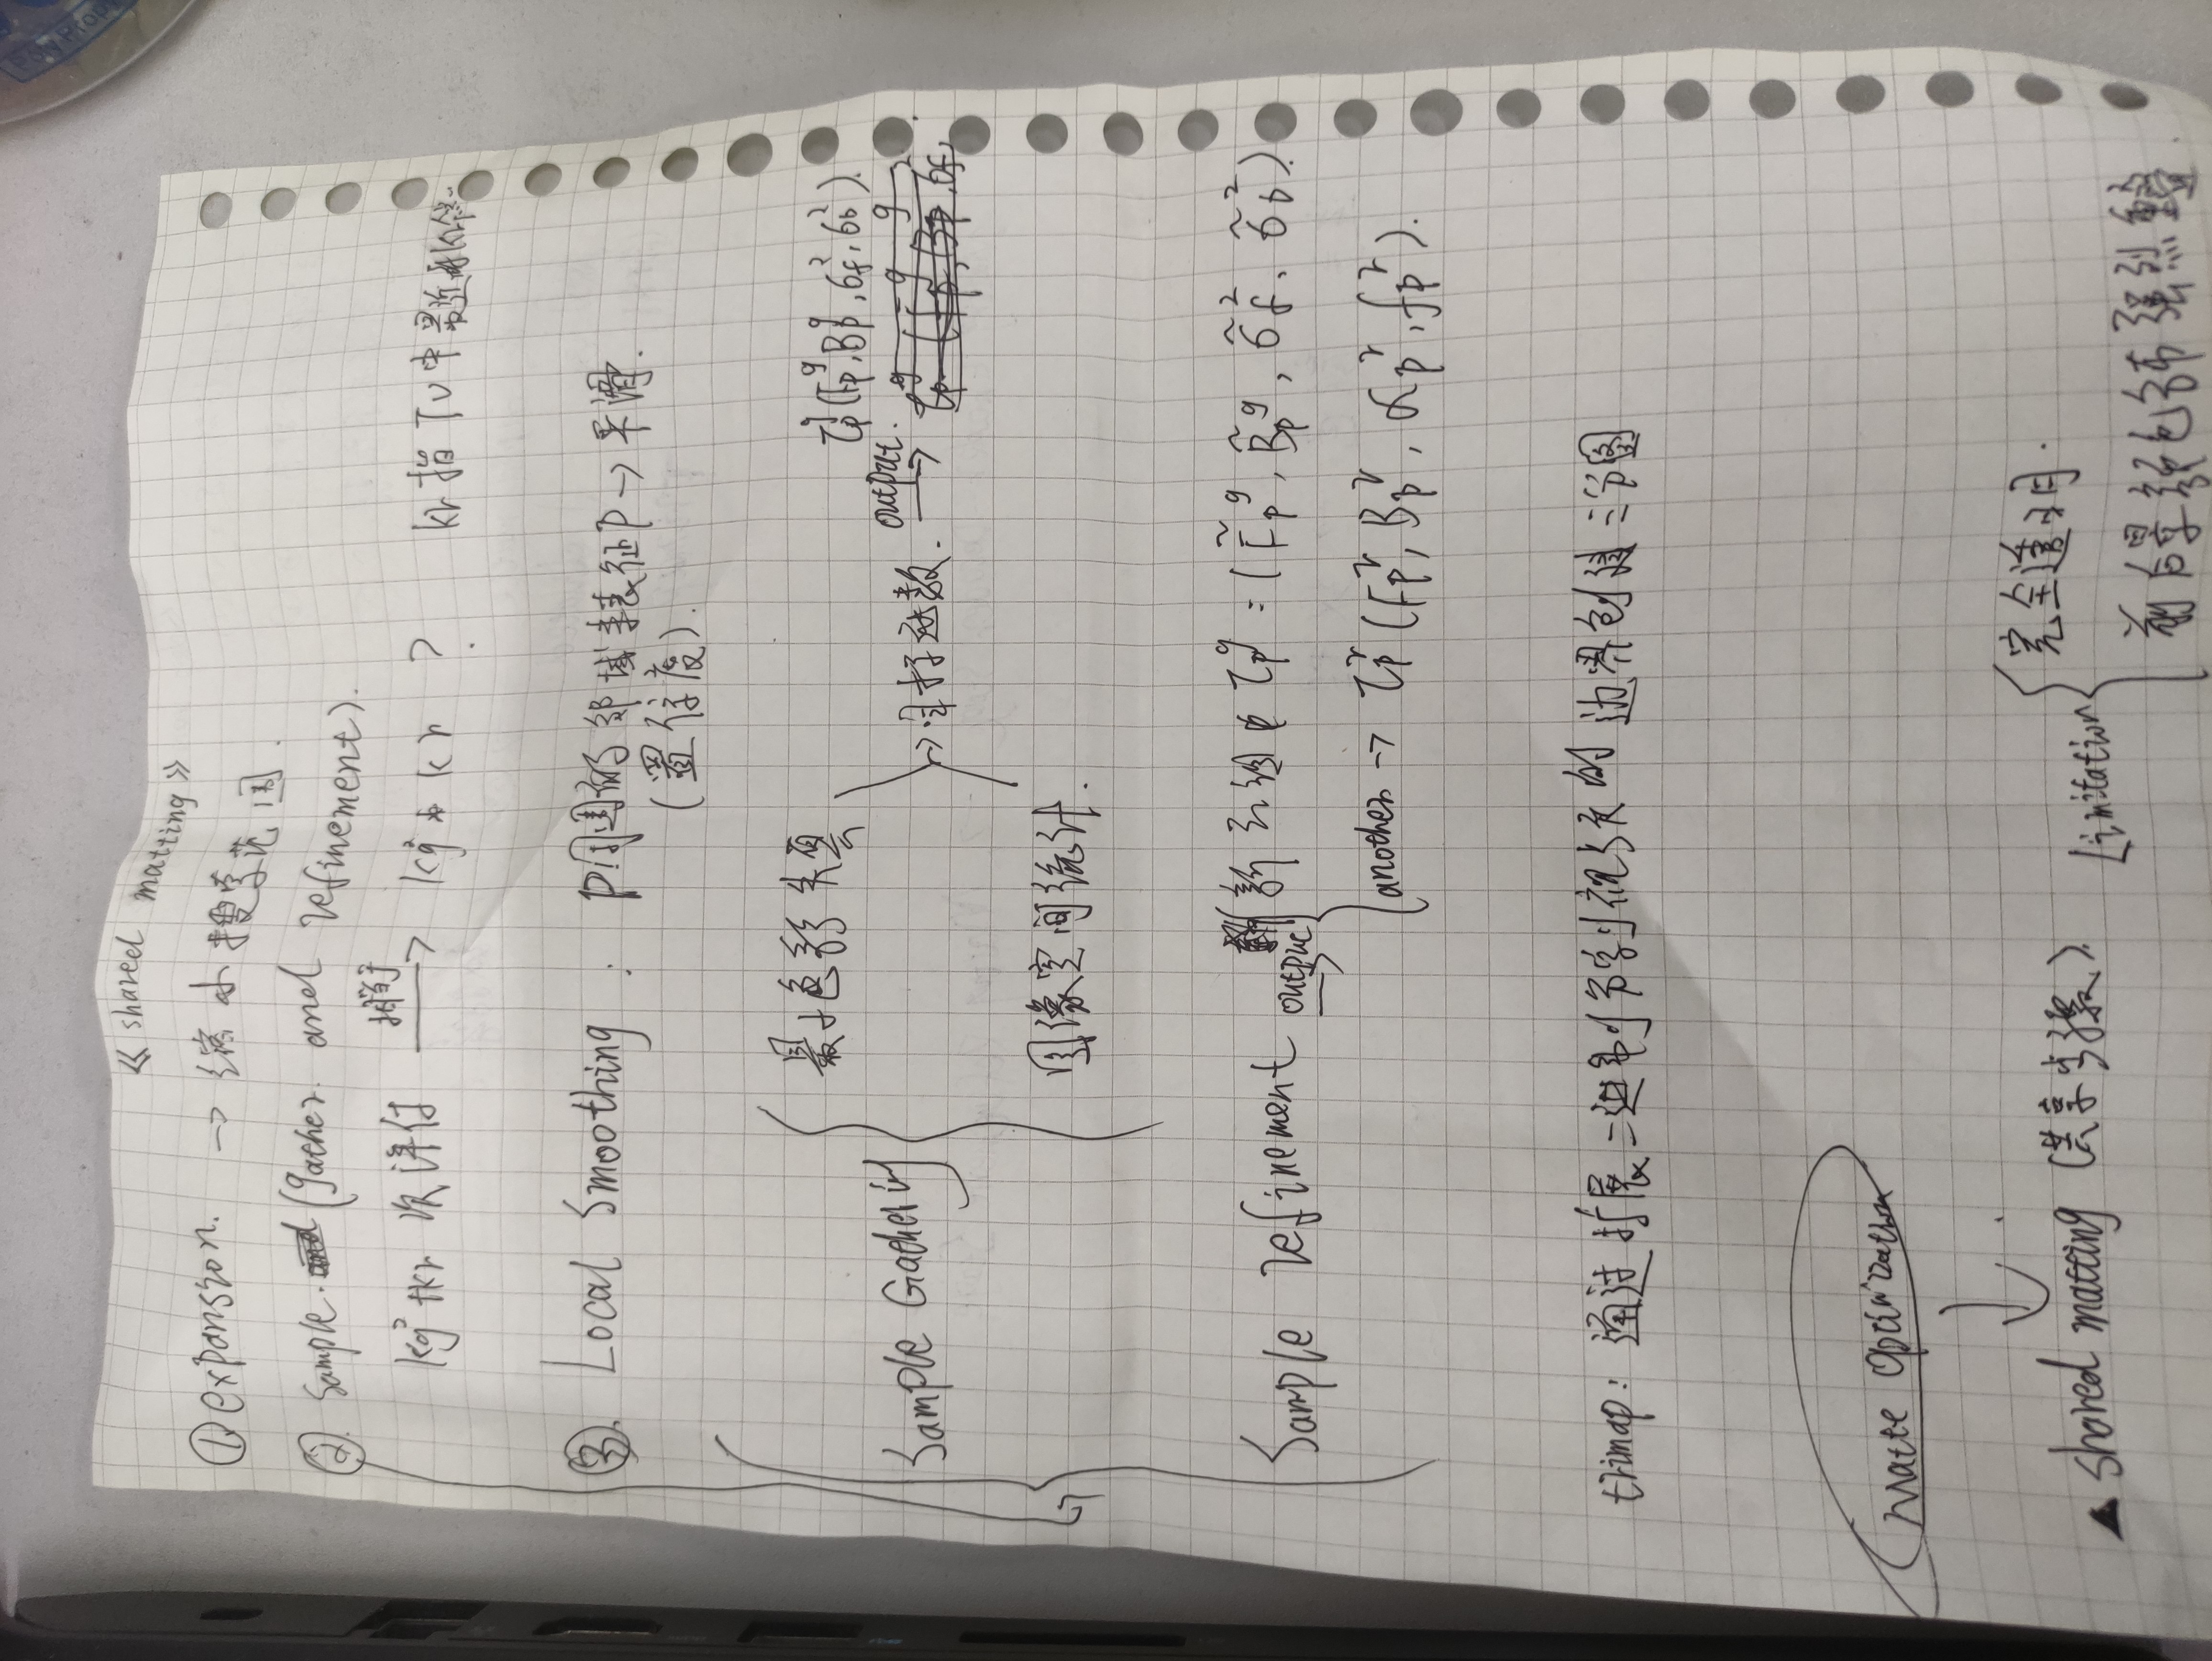 《shared matting》
① expansion. → 缩小搜索范围.
② Sample. (gather and refinement).
kg² + kr 次评估 → kg * kr ? kr 指 Tv 中最近的
③ Local Smoothing : P周围的邻域来表征P → 平滑.
(置信度).
Sample Gathering
最小色彩失真
图像空间统计.
→ 目标函数. output →
τp^g (Fp^g, Bp^g, σf², σb²).
Sample refinement output → 新元组 τ̃p^g = (F̃p^g, B̃p^g, σ̃f², σ̃b²).
another → τp^r (Fp^r, Bp^r, αp^r, fp^r).
trimap: 通过扩展二进制分割视频的边界创建三分图
Matte Optimization
▲ shared matting (共享) Limitation
完全透明.
前景颜色有强烈